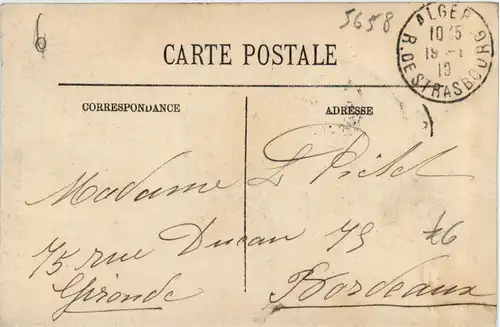 6
5658
ALGER
R. DE STRASBOURG
CARTE POSTALE
CORRESPONDANCE
ADRESSE
Madame L Pictet
75 rue Ducau 75
Gironde Bordeaux